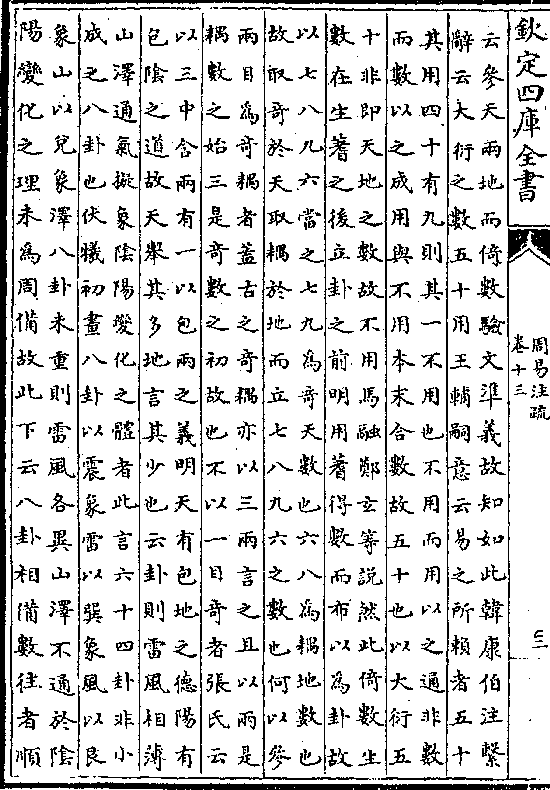 欽定四庫全書
周易注疏
卷十三
三
云參天兩地而倚數驗文準義故知如此韓康伯注繫
辭云大衍之數五十用王輔嗣意云易之所賴者五十
其用四十有九則其一不用也不用而用以之通非數
而數以之成用與不用本末合數故五十也以大衍五
十非即天地之數故不用馬融鄭玄等說然此倚數生
數在生蓍之後立卦之前明用蓍得數而布以為卦故
以七八九六當之七九為奇天數也六八為耦地數也
故取奇於天取耦於地而立七八九六之數也何以參
兩目為奇耦者蓋古之奇耦亦以三兩言之且以兩是
耦數之始三是奇數之初故也不以一目奇者張氏云
以三中含兩有一以包兩之義明天有包地之德陽有
包陰之道故天舉其多地言其少也云卦則雷風相薄
山澤通氣擬象陰陽變化之體者此言六十四卦非小
成之八卦也伏犧初畫八卦以震象雷以巽象風以艮
象山以兌象澤八卦未重則雷風各異山澤不通於陰
陽變化之理未為周備故此下云八卦相備數往者順